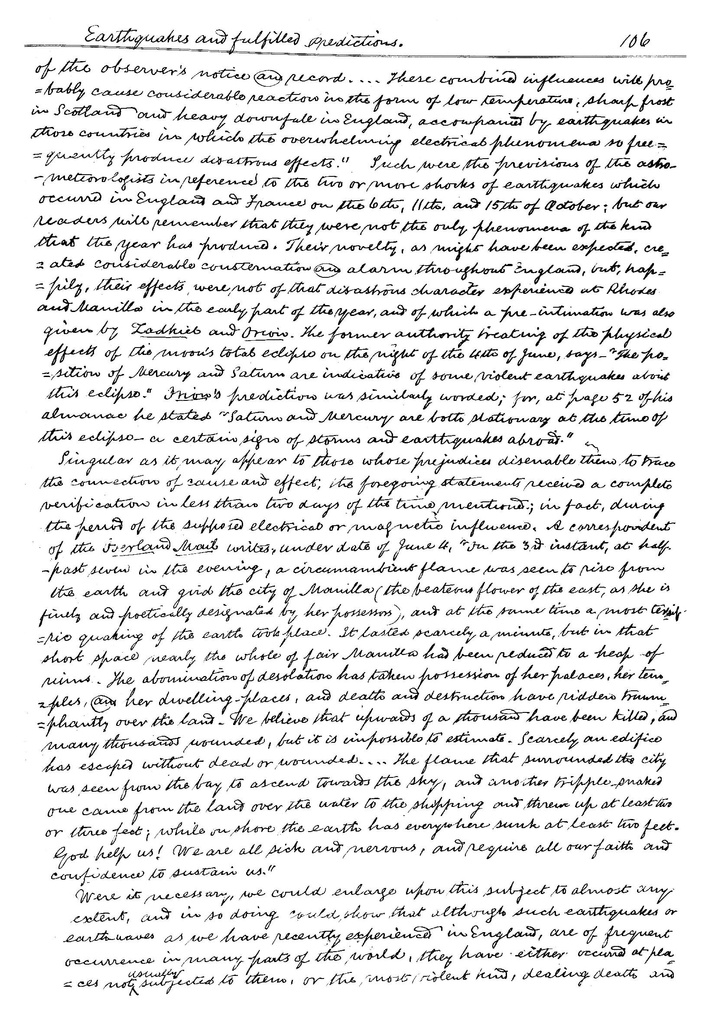 Earthquakes and fulfilled Predictions. 106
of the observer's notice an record.... These combined influences will pro=
=bably cause considerable reaction in the form of low temperature, sharp frost
in Scotland and heavy downfalls in England, accompanied by earthquakes in
those countries in which the overwhelming electrical phenomena so fre=
=quently produce disastrous effects." Such were the previsions of the astro-
-meteorologists in reference to the two or more shocks of earthquakes which
occurred in England and France on the 6th, 11th, and 15th of October; but our
readers will remember that they were not the only phenomena of the kind
that the year has produced. Their novelty, as might have been expected, cre=
=ated considerable consternation an alarm throughout England, but, hap=
=pily, their effects were not of that disastrous character experienced at Rhodes
and Manilla in the early part of the year, and of which a pre-intimation was also
given by Zadkiel and Orion. The former authority treating of the physical
effects of the moon's total eclipse on the night of the 4th of June, says-"The po=
=sition of Mercury and Saturn are indicative of some violent earthquakes about
this eclipse." Orion's prediction was similarly worded; for, at page 52 of his
almanac he stated "Saturn and Mercury are both stationary at the time of
this eclipse - a certain sign of storms and earthquakes abroad."
Singular as it may appear to those whose prejudices disenable them to trace
the connection of cause and effect, the foregoing statements received a complete
verification in less than two days of the time mentioned; in fact, during
the period of the supposed electrical or magnetic influence. A correspondent
of the Overland Mail writes, under date of June 4, "On the 3rd instant, at half-
-past seven in the evening, a circumambient flame was seen to rise from
the earth and gird the city of Manilla (the beateous flower of the east, as she is
finely and poetically designated by her possessors), and at the same time a most terrif-
=ric quaking of the earth took place. It lasted scarcely a minute, but in that
short space nearly the whole of fair Manilla had been reduced to a heap of
ruins. The abomination of desolation has taken possession of her palaces, her tem=
=ples, an her dwelling-places, and death and destruction have ridden trium=
=phantly over the land. We believe that upwards of a thousand have been killed, and
many thousands wounded, but it is impossible to estimate. Scarcely an edifice
has escaped without dead or wounded.... The flame that surrounded the city
was seen from the bay to ascend towards the sky, and another tripple-snaked
one came from the land over the water to the shipping and threw up at least two
or three feet; while on shore the earth has everywhere sunk at least two feet.
God help us! We are all sick and nervous, and require all our faith and
confidence to sustain us."
Were it necessary, we could enlarge upon this subject to almost any
extent, and in so doing could show that although such earthquakes or
earthwaves as we have recently experienced in England, are of frequent
occurrence in many parts of the world, they have either occurred at pla=
=ces not usually subjected to them, or the most violent kind, dealing death and